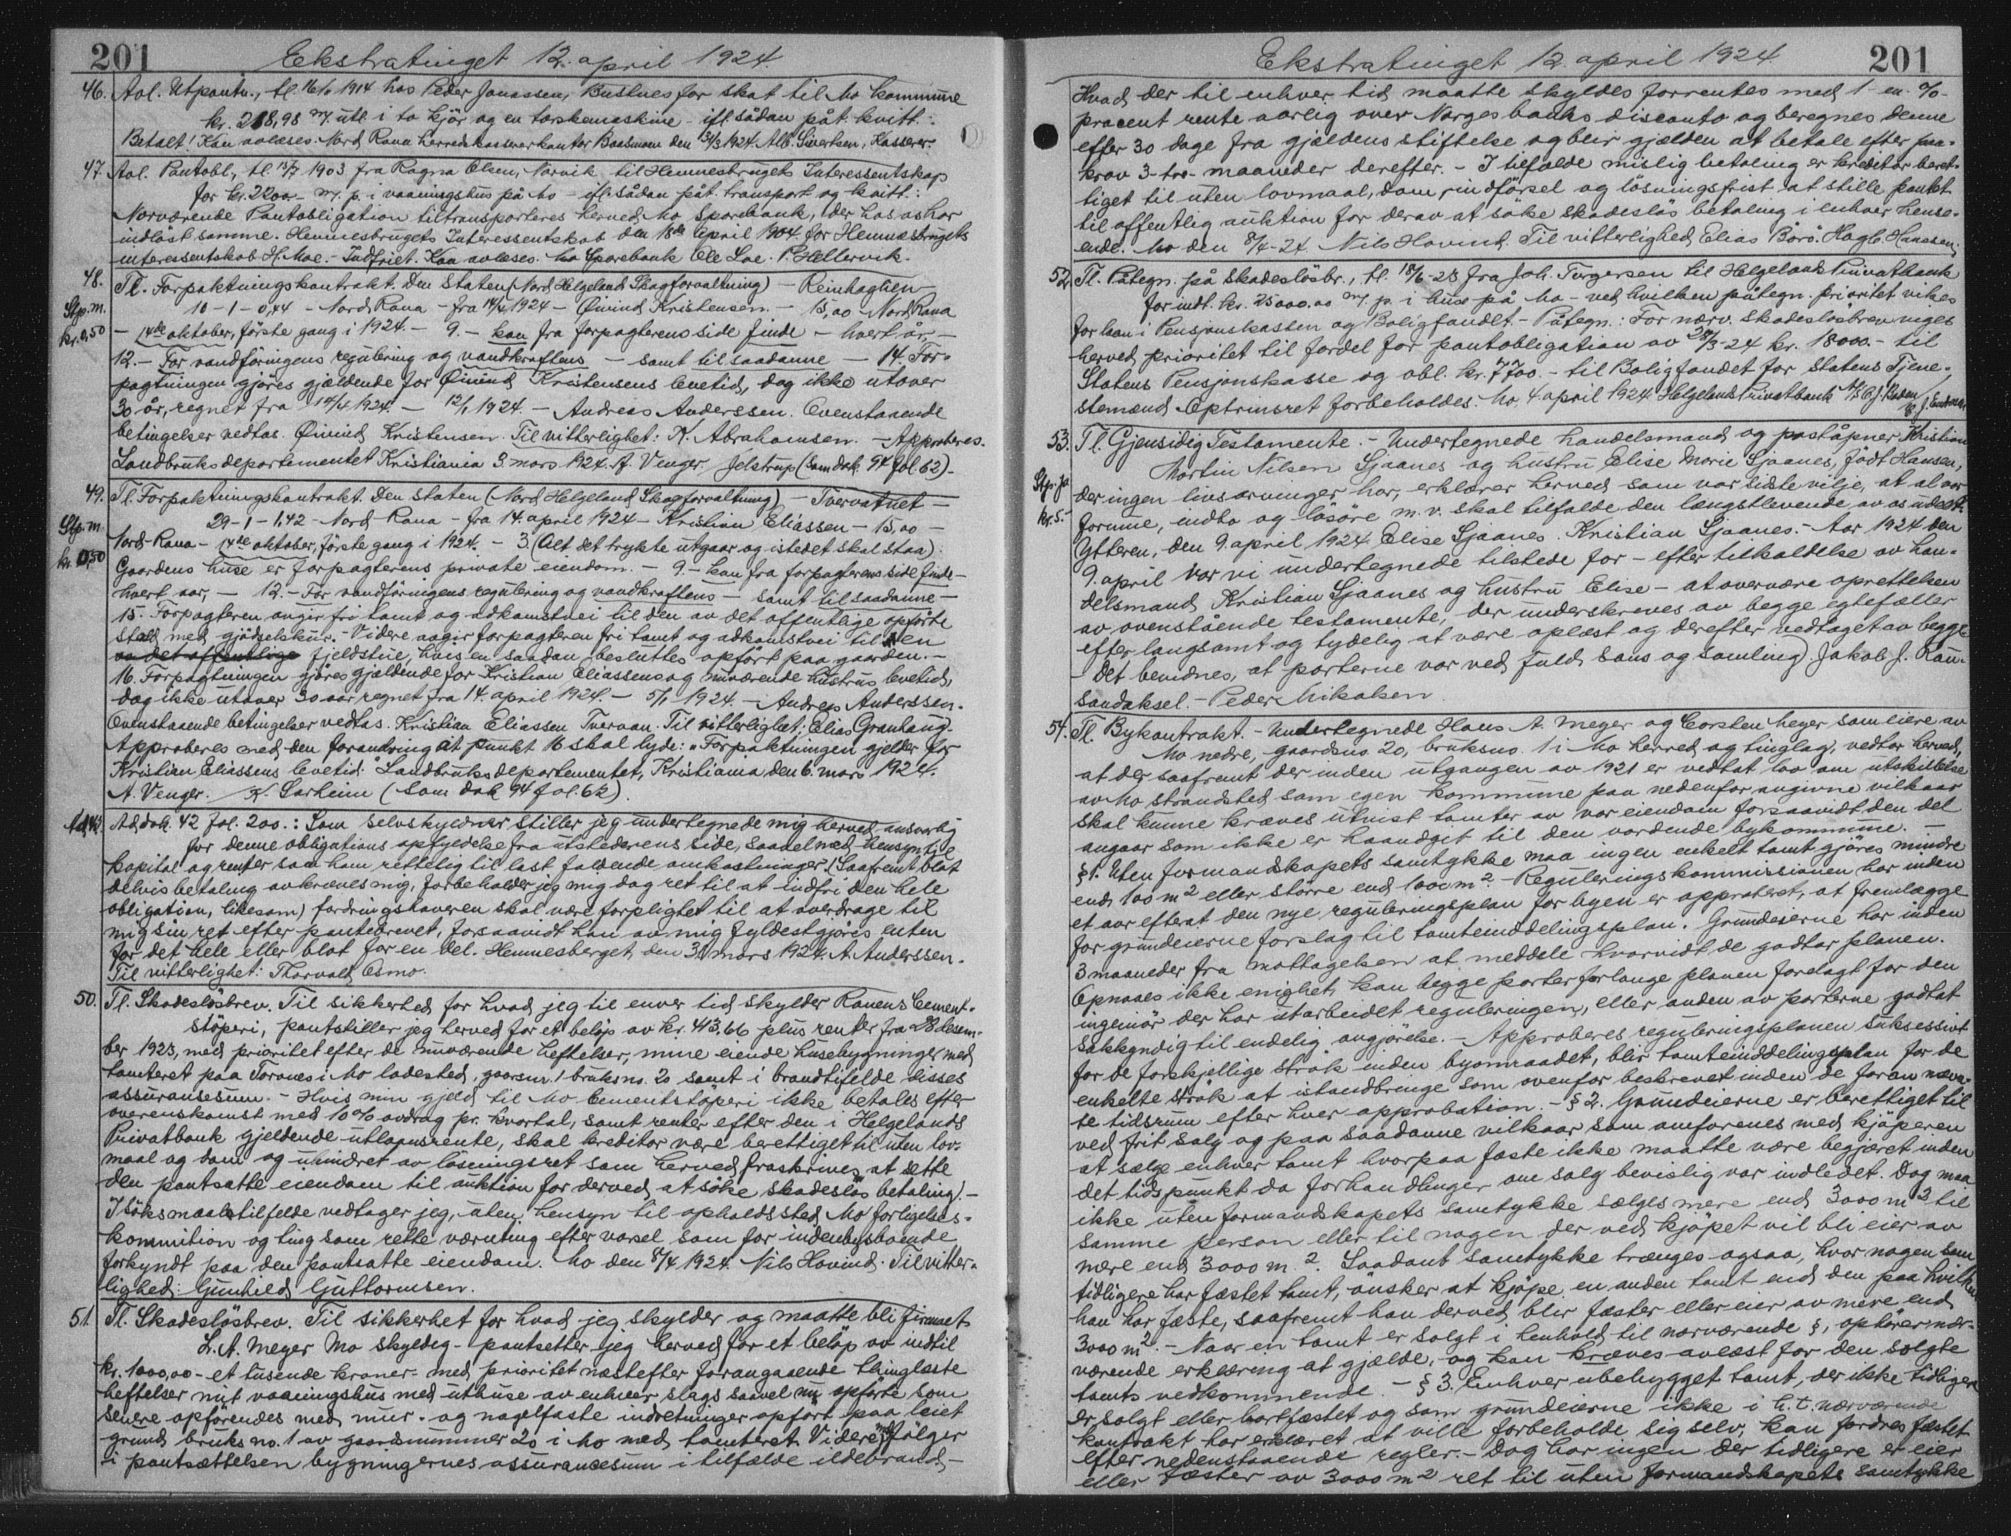 201
Ekstratinget 12. april 1924.
46. Avl. Utpantn., tl. 16/6 1914 hos Peder Jonassen, Bustnes for skat til Mo kommune
kr. 218,98 m/ utl. i to kjör og en torskemaskine - ifl. sådan påt. kvitt.:
Betalt! Kan avlæses. Nord Rana Herredskassererkontor Baasmoen den 31/3 1924. Alb. Sivertsen, Kasserer.
47. Avl. Pantobl., tl. 13/7 1903 fra Ragna Olsen, Narvik til Hemnesbrugets Interessentskap
for kr. 2200.- m/ p. i vaaningshus på Mo - ifl. sådan påt. transport og kvitt.:
Nærværende Pantobligation tiltransporteres herved Mo Sparebank, der hos os har
indlöst samme. Hemnesbrugets Interessentskab den 18de April 1904 for Hemnesbrugets
interessentskab H. Moe. - Indfriet. Kan avlæses. Mo Sparebank Ole Loe. P. Hellervik.
48. Tl. Forpaktningskontrakt. Den Staten (Nord Helgeland Skogforvaltning) - Reinhaglien -
Stp. m. 10 - 1 - 0,44 - Nord Rana - fra 14/4 1924 - Öivind Kristensen. - 15,00 - Nord Rana
kr. 0,50 - 14de oktober, förste gang i 1924. - 9. - kan fra forpagterens side finde - hvert år, -
12. - For vandföringens regulering og vandkraftens - samt til saadanne - 14. For-
pagtningen gjöres gjældende for Öivind Kristensens levetid, dog ikke utover
30 år, regnet fra 14/4 1924. - 12/1 1924. - Andreas Anderssen. Ovenstaaende
betingelser vedtas. Öivind Kristensen. Til vitterlighet: K. Abrahamsen. - Approberes.
Landbruksdepartementet Kristiania 3. mars 1924. A. Venger. Jelstrup (Som dok. 94 fol. 62).
49. Tl. Forpaktningskontrakt. Den staten (Nord Helgeland Skogforvaltning) - Tvervatnet -
Stp. m. 29 - 1 - 1,42 - Nord Rana - fra 14. april 1924 - Kristian Eliassen - 15,00 -
Nord-Rana - 14de oktober, förste gang i 1924. - 3. (Alt det trykte utgaar og istedet skal staa):
kr. 0,50 Gaardens huse er forpagterens private eiendom. - 9. - kan fra forpagterens side finde -
hvert aar, - 12. - For vandföringens regulering og vandkraftens - samt til saadanne -
15. Forpagteren avgir fri tomt og adkomstvei til den av det offentlige opförte
stald med gjödselskur. - Videre avgir forpagteren fri tomt og adkomstvei til den
av det offentlige fjeldstue, hvis en saadan besluttes opfört paa gaarden. -
16. Forpagtningen gjöres gjældende for Kristian Eliassens og nuværende hustrus levetid,
dog ikke utover 30 aar regnet fra 14. april 1924. - 5/1 1924. - Andreas Anderssen.
Ovenstaaende betingelser vedtas. Kristian Eliassen Tvervan. Til vitterlighet: Elias Granhaug.
Approberes med den forandring at punkt 16 skal lyde: "Forpaktningen gjelder for
Kristian Eliassens levetid." Landbruksdepartementet, Kristiania, den 6. mars 1924.
A. Venger. K. Sarheim (Som dok 94 fol. 62).
Ad dok. 42 fol. 200.: Som selvskyldner stiller jeg undertegnede mig herved ansvarlig
for denne obligations opfyldelse fra utstederens side, saavel med hensyn til
kapital og renter som ham rettelig til last faldende omkostninger. (Saafremt blot
delvis betaling avkræves mig, forbeholder jeg mig dog ret til at indfri den hele
obligation, likesom) fordringshaveren skal være forpligtet til at overdrage til
mig sin ret efter pantebrevet, forsaavidt han av mig fyldestgjöres enten
for det hele eller blot for en del. Hemnesberget, den 31. mars 1924. A. Anderssen.
Til vitterlighet: Thorvald Osmo.
50. Tl. Skadeslösbrev. Til sikkerhed for hvad jeg til enver tid skylder Ranens Cement-
stöperi, pantstiller jeg herved for et belöp av kr. 413,66 plus renter fra 28 desem-
ber 1923, med prioritet efter de nuværende heftelser, mine eiende husebygninger med
tomteret paa Torvnes i Mo ladested, gaarsnr. 1 bruksno. 20 samt i brandtilfelde disses
assuransesum. - Hvis min gjeld til Mo Cementstöperi ikke betales efter
overenskomst med 10% avdrag pr. kvartal, samt renter efter den i Helgelands
Privatbank gjeldende utlaansrente, skal kreditor være berettiget til uten lov-
maal og dom og uhindret av lösningsret som herved fraskrives at sette
den pantsatte eiendom til auktion for derved at söke skadeslös betaling. -
I söksmaalstilfelde vedtager jeg, uten hensyn til opholdssted Mo forligelses-
kommition og ting som rette værneting efter varsel som for indenbysboende
forkyndt paa den pantsatte eiendom. Mo den 8/4 1924 Nils Hovind. Til vitter-
lighed: Gunhild Guttormsen.
51. Tl. Skadeslösbrev. Til sikkerhet for hvad jeg skylder og maatte bli firmaet
L. A. Meyer Mo skyldig - pantsetter jeg herved for et belöp av indtil
kr. 1000,00 - et tusende kroner - med prioritet næstefter forangaaende thinglæste
heftelser mit vaaningshus med uthuse av enhver slags saavel nu opförte som
senere opförendes med mur- og nagelfaste indretninger opfört paa leiet
grund bruks no. 1 av gaardsnummer 20 i Mo med tomteret. Videre medfölger
i pantsættelsen bygningernes assurancesum i tilfælde ildebrand. -
Ekstratinget 12. april 1924
201
Hvad der til enhver tid maatte skyldes forrentes med 1 - en % -
procent rente aarlig over Norges banks disconto og beregnes denne
efter 30 dage fra gjældens stiftelse og blir gjælden at betale efter paa-
krav 3 - tre - maaneder derefter. - I tilfælde mislig betaling er kreditor beret-
tiget til uten lovmaal, dom, indförsel og lösningsfrist, at stille pantet
til offentlig auktion for derav at söke skadeslös betaling i enhver hense-
ende. Mo den 8/4-24 Nils Hovind. Til vitterlighed Elias Börö. Hagb. Hanssen.
52. Tl. Påtegn. på skadeslösbr., tl. 18/6-23 fra Joh. Torgersen til Helgelands Privatbank
for indt. kr. 25000.00 m/ p. i hus på Mo - ved hvilken påtegn. prioritet vikes
for lån i Pensjonskassen og Boligfondet. - Påtegn.: For nærv. skadeslösbrev viges
herved prioritet til fordel for pantobligation av 28/3-24 kr. 18000. - til
Statens Pensjonskasse og obl. kr. 7700. - til Boligfondet for Statens Tjene-
stemænd. Optrinsret forbeholdes. Mo, 4 april 1924 Helgelands Privatbank
53. Tl. Gjensidig Testamente. - Undertegnede handelsmand og poståpner Kristian
Martin Nilsen Sjaanes og hustru Elise Marie Sjaanes, födt Hansen,
Stp. ja der ingen livsarvinger har, erklærer herved som vor sidste vilje, at al vor
kr. 5.- formue, indbo og lösöre m.v. skal tilfalde den længstlevende av os udelt.
Ytteren, den 9. april 1924. Elise Sjaanes. Kristian Sjaanes. - Aar 1924 den
9. april var vi undertegnede tilstede for - efter tilkaldelse av han-
delsmand Kristian Sjaanes og hustru Elise - at overvære oprettelsen
av ovenstående testamente, der underskreves av begge egtefæller
efter langsamt og tydelig at være oplæst og derefter vedtaget av begge
- Det bevidnes, at parterne var ved fuld sans og samling) Jakob J. Ran-
sandaksel. - Peder Mikalsen.
54. Tl. Bykontrakt. - Undertegnede Hans A. Meyer og Corsten Meyer som eiere av
Mo nedre, gaardsno 20, bruksno. 1 i Mo herred og tinglag, vedtar herved,
at der saafremt der inden utgangen av 1921 er vedtat lov om utskillelse
av Mo strandsted som egen kommune paa nedenfor angivne vilkaar
skal kunne kræves utvist tomter av vor eiendom forsaavidt den del
angaar som ikke er haandgit til den vordende bykommune. -
§ 1. Uten formandskapets samtykke maa ingen enkelt tomt gjöres mindre
end 100 m² eller större end 1000 m². - Reguleringskommissionen har inden
et aar efterat den nye reguleringsplan for byen er approbert, at fremlægge
for grundeierne forslag til tomteinddelingsplan. Grundeierne har inden
3 maaneder fra mottagelsen at meddele hvorvidt de godtar planen.
Opnaaes ikke enighet, kan begge parter forlange planen forelagt for den
ingeniör der har utarbeidet reguleringen, eller anden av parterne godtat
sakkyndig til endelig avgjörelse. - Approberes reguleringsplanen suksessivt
for de forskjellige strök inden byomraadet, blir tomteinddelingsplan for de
enkelte strök at istandbringe som ovenfor beskrevet inden de foran nævn-
te tidsrum efter hver approbation. - § 2. Grundeierne er berettiget til
ved frit salg og paa saadanne vilkaar som omforenes med kjöperen
at sælge enhver tomt hvorpaa fæste ikke maatte være begjæret inden
det tidspunkt da forhandlinger om salg bevislig var indledet. Dog maa
ikke uten formandskapets samtykke sælges mere end 3000 m² til
samme person eller til nogen der ved kjöpet vil bli eier av
mere end 3000 m². Saadant samtykke trænges ogsaa, hvor nogen som
tidligere har fæstet tomt, önsker at kjöpe en anden tomt end den paa hvilken
han har fæste, saafremt han derved blir fæster eller eier av mere end
3000 m². - Naar en tomt er solgt i henhold til nærværende §, ophörer nær-
værende erklæring at gjælde, og kan kræves avlæst for den solgte
tomts vedkommende. - § 3. Enhver ubebygget tomt, der ikke tidligere
er solgt eller bortfæstet og som grundeierne ikke i h.t. nærværende
kontrakt har erklæret at ville forbeholde sig selv, kan fordres fæstet
efter nedenstaaende regler. - Dog har ingen der tidligere er eier
eller fæster av 3000 m² ret til uten formandskapets samtykke